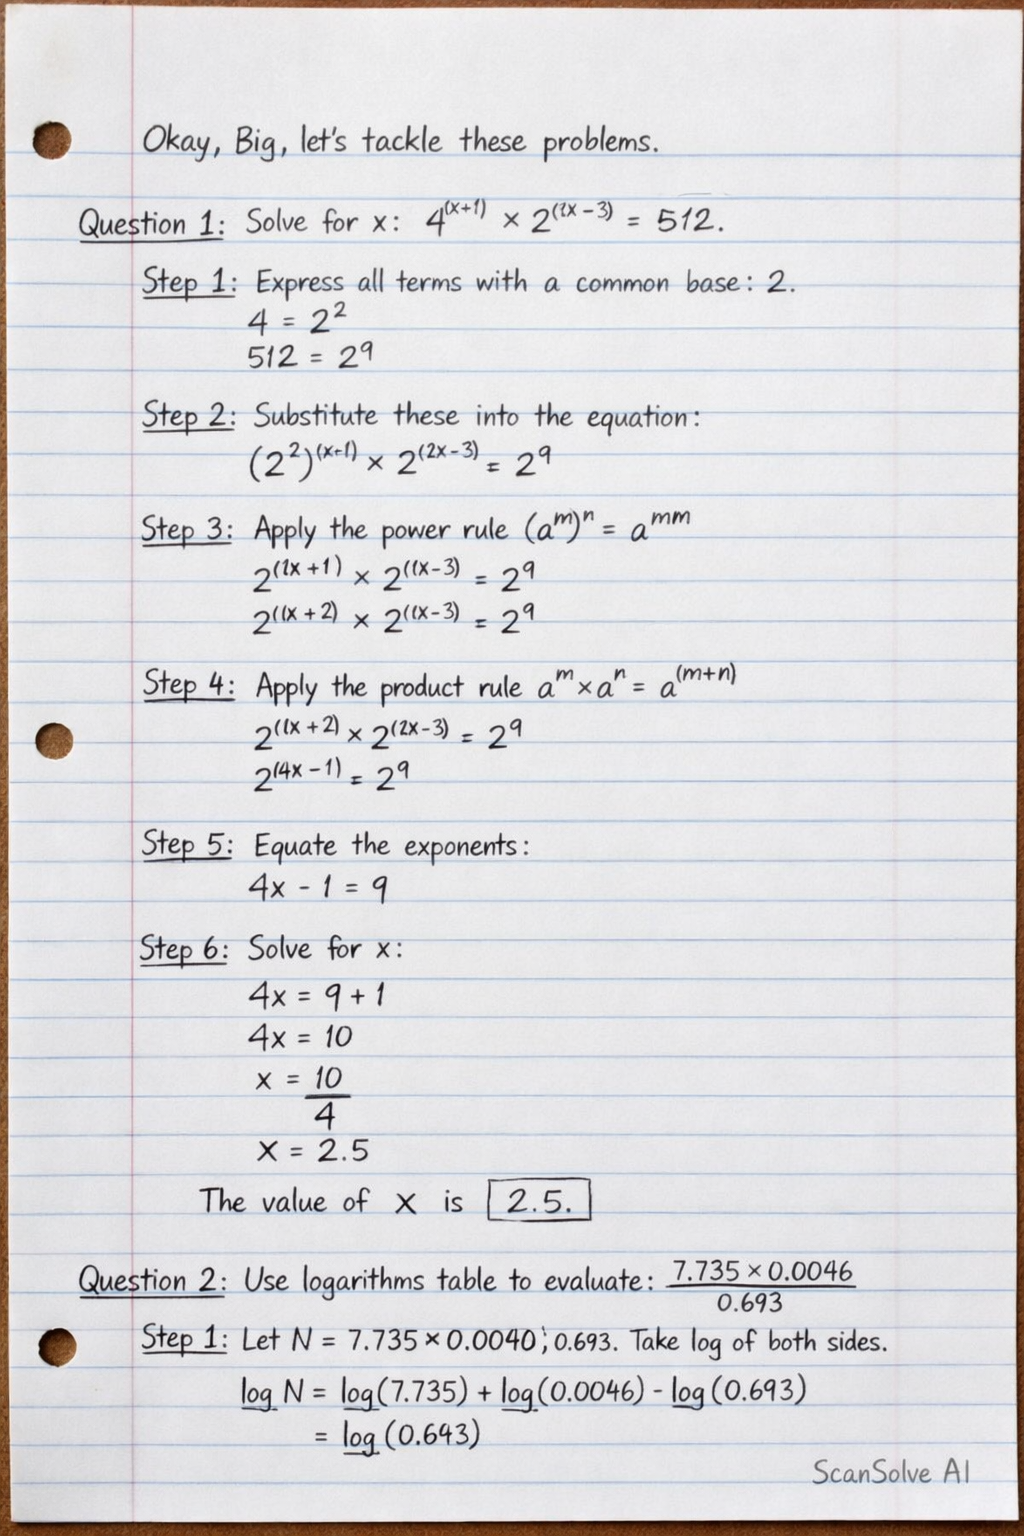 Okay, Big, let's tackle these problems.
Question 1: Solve for x: 4^(x+1) × 2^(2x-3) = 512.
Step 1: Express all terms with a common base: 2.
4 = 2²
512 = 2⁹
Step 2: Substitute these into the equation:
(2²)^(x+1) × 2^(2x-3) = 2⁹
Step 3: Apply the power rule (a^m)^n = a^mm
2^(2x+1) × 2^((x-3) = 2⁹
2^((x+2) × 2^((x-3) = 2⁹
Step 4: Apply the product rule a^m × a^n = a^(m+n)
2^((x+2) × 2^(2x-3) = 2⁹
2^(4x-1) = 2⁹
Step 5: Equate the exponents:
4x - 1 = 9
Step 6: Solve for x:
4x = 9 + 1
4x = 10
x = 10
4
x = 2.5
The value of x is 2.5.
Question 2: Use logarithms table to evaluate: 7.735 × 0.0046
0.693
Step 1: Let N = 7.735 × 0.0040; 0.693. Take log of both sides.
log N = log(7.735) + log(0.0046) - log(0.693)
= log(0.643)
ScanSolve AI